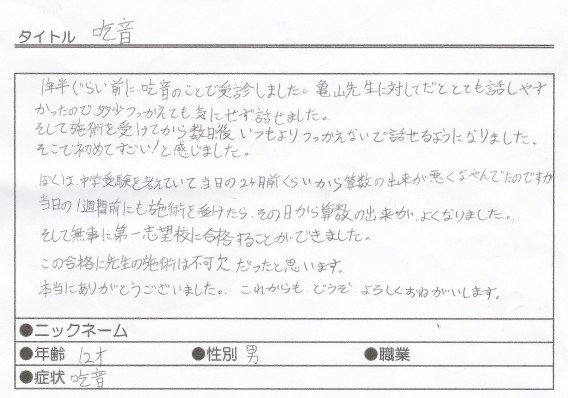 タイトル 吃音
1年半ぐらい前に吃音のことで受診しました。亀山先生に対してだととても話しやす
かったので多少つっかえても気にせず話せました。
そして施術を受けてから数日後、いつもよりつっかえないで話せるようになりました。
そこで初めてすごい!と感じました。
ぼくは中学受験を考えていて当日の2ヶ月前くらいから算数の出来が悪くなやんでたのですが
当日の1週間前にも施術を受けたら、その日から算数の出来が、よくなりました。
そして無事に第一志望校に合格することができました。
この合格に先生の施術は不可欠だったと思います。
本当にありがとうございました。これからも、どうぞ、よろしくおねがいします。
●ニックネーム
●年齢 12才 ●性別 男 ●職業
●症状 吃音